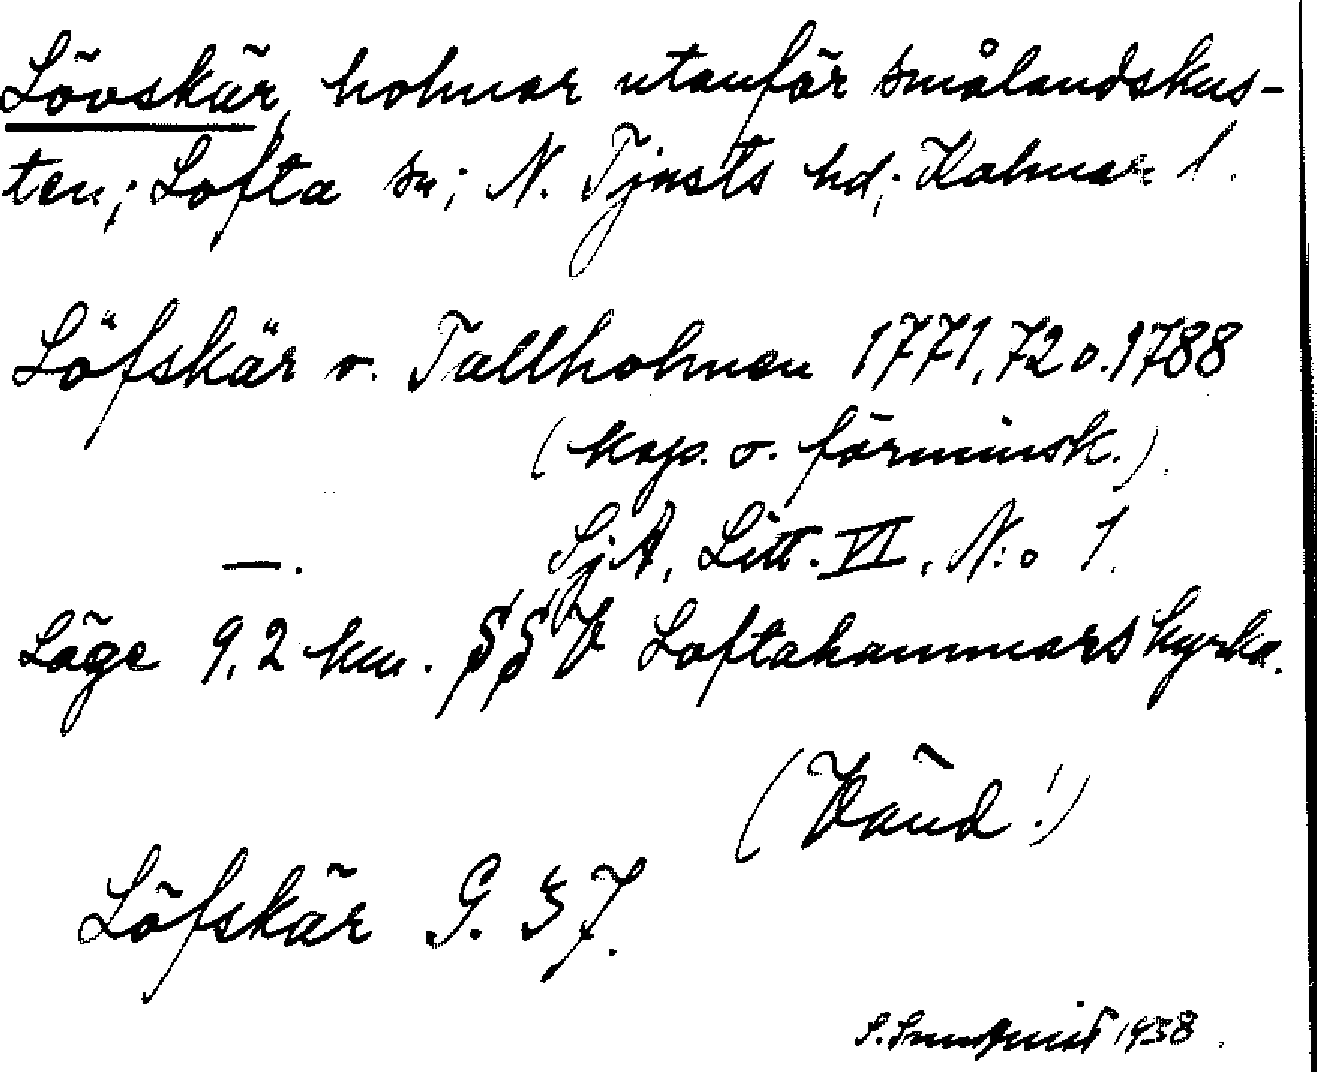 Lövskär, holmar utanför smålandskus-
ten; Lofta sn; N. Tjusts hd; Kalmar l.
Löfskär o. Tallholmen 1771, 72 o. 1788
(kop. o. förminsk.).
SjA, Litt. VI, N:o 1.
—.
Läge 9,2 km. SSV Loftahammars kyrka.
(Vänd!)
Löfskär G. 37.
S. 1938.